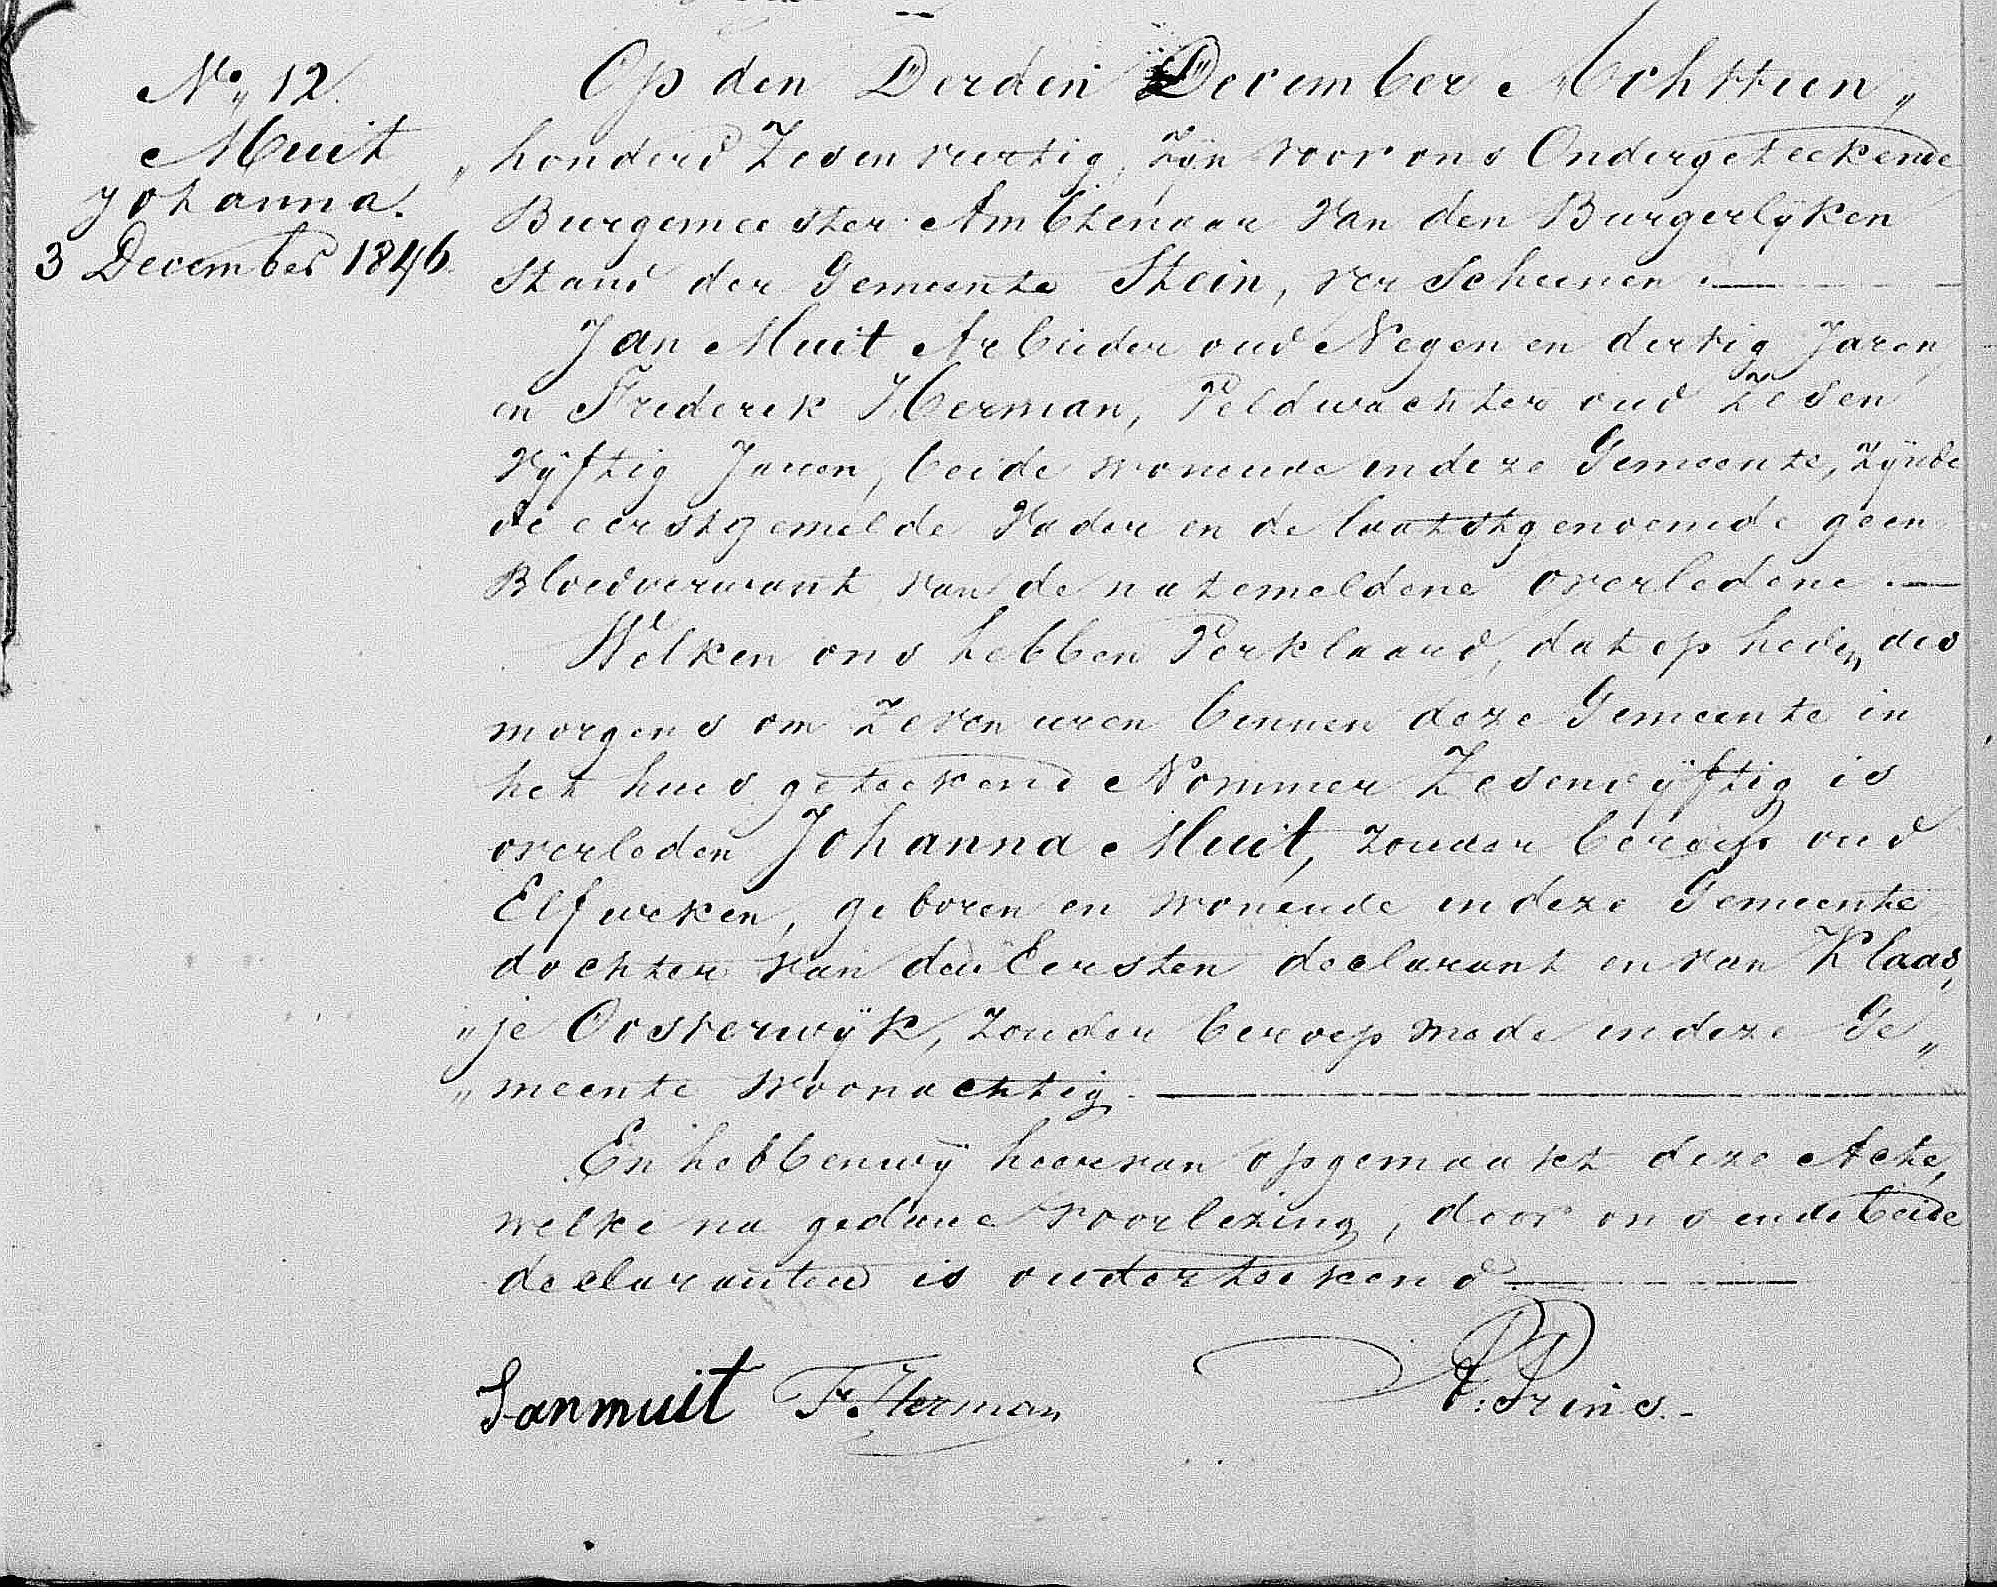 No,, 12.
Muit
Johanna.
3 December 1846.
Op den Derden December Achttien,,
,,honderd Zesenveertig, Zijn voor ons Ondergeteekende
Burgemeester Ambtenaar van den Burgerlijken
Stand der Gemeente Stein, verScheenen.
Jan Muit Arbeider oud Negen en dertig Jaren,
en Frederik Herman, Veldwachter oud Zesen
vijftig Jaren, beide wonende indeze Gemeente, Zijnde
de eerstgemelde Vader en de laatstgenoemde geen
Bloedverwant van de natemeldene overledene.
Welken ons hebben Verklaard, dat op heden des
morgens om Zeven uren binnen deze Gemeente in
het huis geteekend Nommer Zesenvijftig is
overleden Johanna Muit, Zonder beroep oud
Elf weken, geboren en wonende indeze Gemeente
dochter van den Eersten declarant en van Klaas,,
,,je Oosterwijk, Zonder beroep mede indeze Ge,,
,,meente woonachtig.
En hebbenwij hiervan opgemaakt deze Acte,
welke na gedane voorlezing, door ons ende beide
declaranten is onderteekend
Janmuit F. Herman P: Prins.